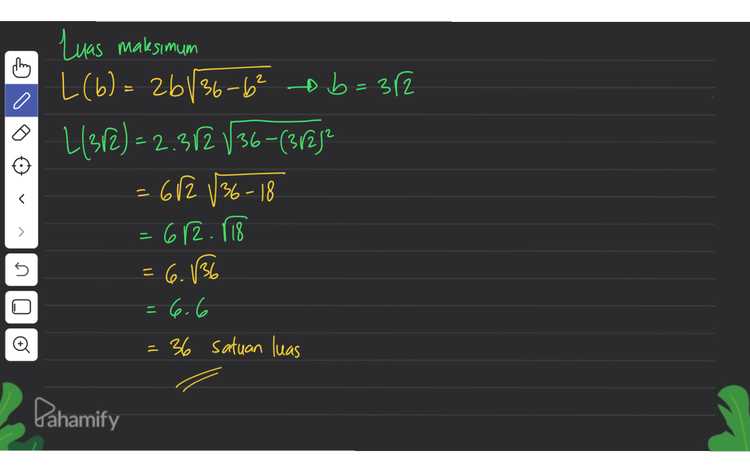 Luas maksimum
L(b) = 2b√36-b² → b = 3√2
L(3√2) = 2.3√2 √36-(3√2)²
= 6√2 √36-18
= 6√2.√18
= 6.√36
= 6.6
= 36 satuan luas
Pahamify